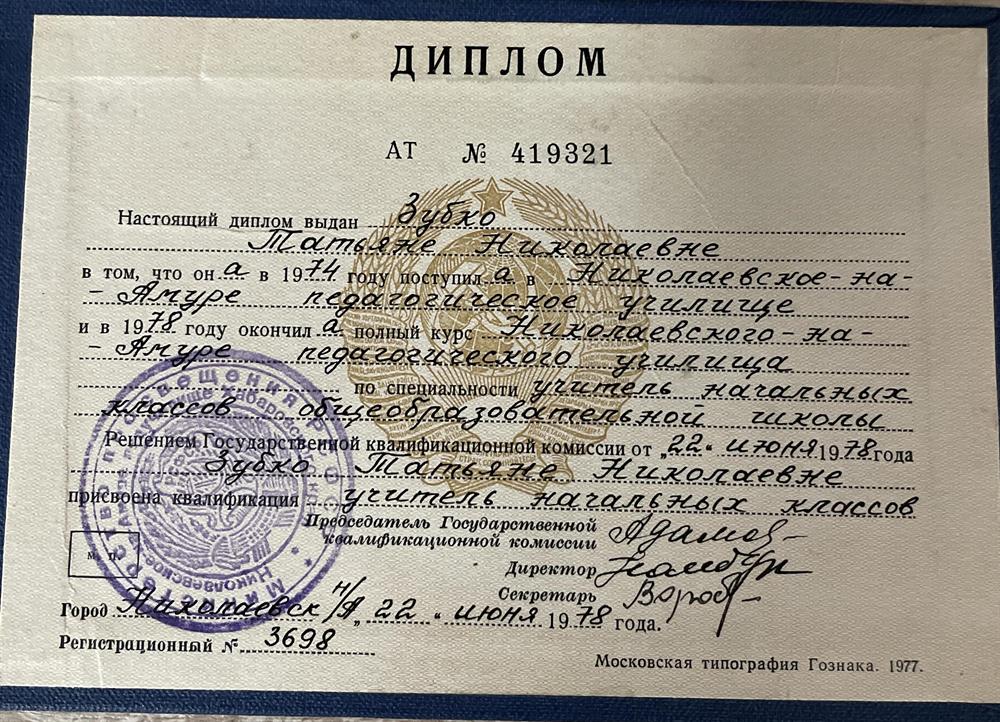 ДИПЛОМ
АТ № 419321
Настоящий диплом выдан Зубко
Татьяне Николаевне
в том, что он а в 1974 году поступил а в Николаевское-на-
-Амуре педагогическое училище
и в 1978 году окончил а полный курс Николаевского-на-
-Амуре педагогического училища
по специальности учитель начальных
классов общеобразовательной школы
Решением Государственной квалификационной комиссии от „22" июня 1978 года
Зубко Татьяне Николаевне
присвоена квалификация учитель начальных классов
Председатель Государственной
квалификационной комиссии
Директор
Секретарь
м. п.
Город Николаевск н/А „22" июня 1978 года.
Регистрационный № 3698
Московская типография Гознака. 1977.